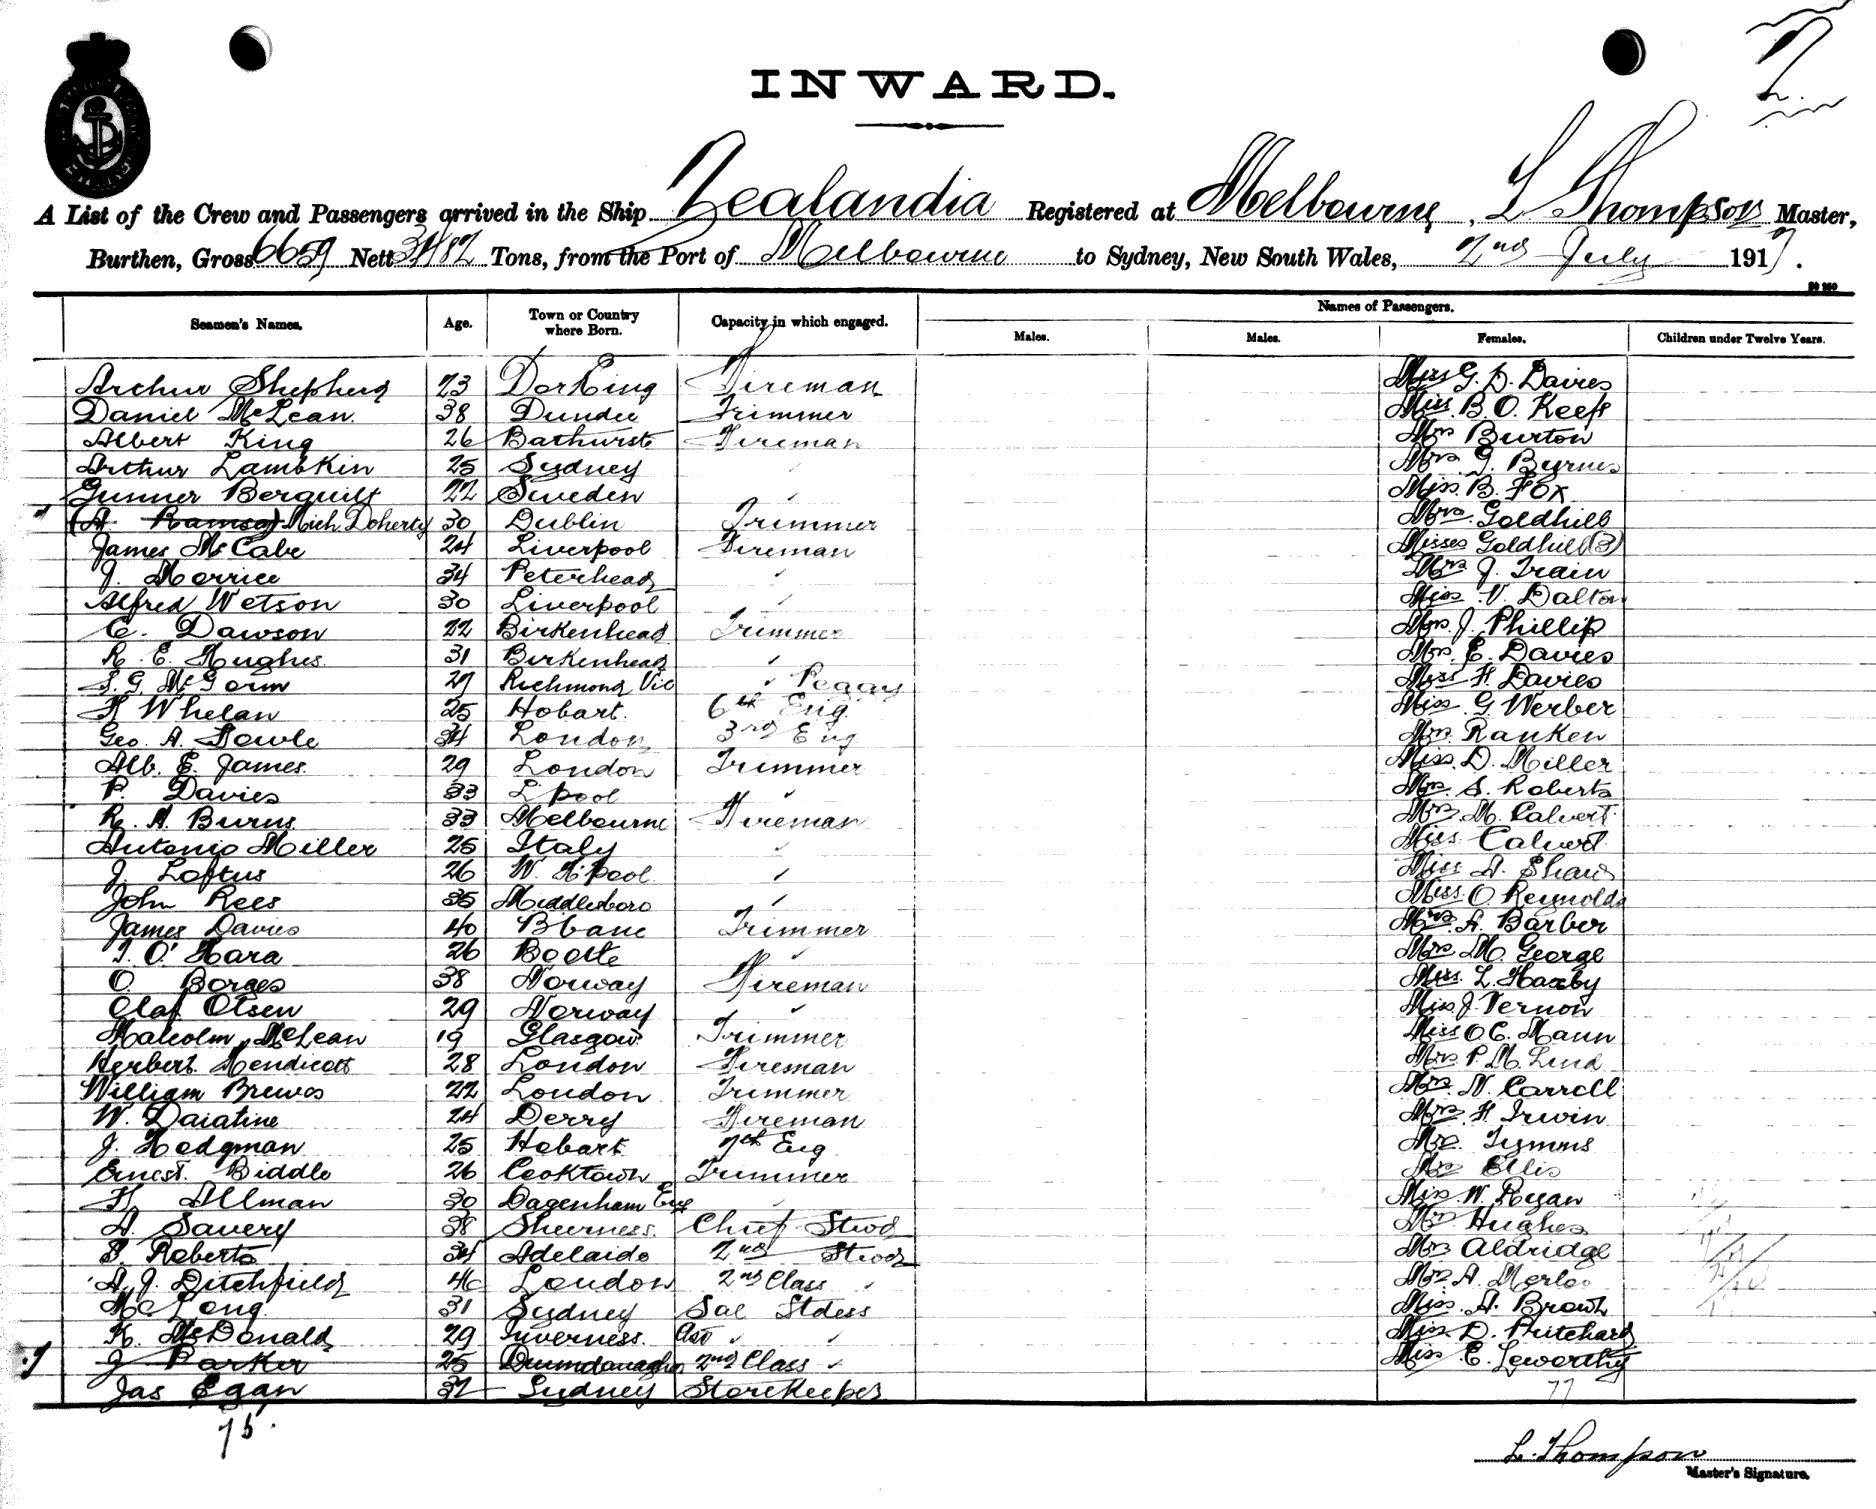 INWARD.
A List of the Crew and Passengers arrived in the Ship Zealandia Registered at Melbourne, L Thompson Master,
Burthen, Gross 6659 Nett 3482 Tons, from the Port of Melbourne to Sydney, New South Wales, 2nd July 1917.
Names of Passengers.
Seamen's Names. Age. Town or Country where Born. Capacity in which engaged. Males. Males. Females. Children under Twelve Years.
Arthur Shepherd 23 Dorking Fireman Miss G. D. Davies
Daniel McLean. 38 Dundee Trimmer Miss B. O. Keefe
Albert King 26 Bathurst Fireman Mrs Burton
Arthur Lambkin 25 Sydney " Mrs G. Byrnes
Gunner Berquist 22 Sweden " Miss. B. Fox
(A Ramsay) Mich. Doherty 30 Dublin Trimmer Mrs. Goldhill
James McCabe 24 Liverpool Fireman Misses Goldhill (3)
J. Morrice 34 Peterhead " Mrs J. Train
Alfred Wetson 30 Liverpool " Miss V. Dalton
C. Dawson 22 Birkenhead Trimmer Mrs. J. Phillip
R. E. Hughes 31 Birkenhead " Mrs. E. Davies
S. G. McGorm 29 Richmond Vic " Peggy Miss H. Davies
F Whelan 25 Hobart. 6th Eng. Miss. G. Werber
Geo. A. Fowle 34 London 3rd Eng Mrs. Ranken
Alb. E. James. 29 London Trimmer Miss. D. Miller
P. Davies 33 L'pool " Mrs. S. Roberts
R. A. Burns 33 Melbourne Fireman Mrs. M. Calvert
Antonio Miller 25 Italy " Miss Calvert
J. Loftus 26 W. H'pool " Miss A. Shaw
John Rees 35 Middlesboro " Miss O. Reynolds
James Davies 40 B'bane Trimmer Mrs. A. Barber
T. O'Hara 26 Bootle " Mrs. M. George
O. Borges 38 Norway Fireman Miss. L. Haxby
Olaf Olsen 29 Norway " Miss J. Vernon
Malcolm McLean 19 Glasgow Trimmer Miss O C. Mann
Herbert Mendicott 28 London Fireman Mrs P. M. Lind
William Brewos 22 London Trimmer Mrs. N. Carroll
W. Daiatine 24 Derry Fireman Mrs. H Irwin
J. Hodgman 25 Hobart 7th Eng Mrs. Tymms
Ernest. Biddle 26 Cooktown Trimmer Mrs Ellis
H Allman 30 Dagenham Eng " Miss. W. Ryan
A. Savery 38 Sheerness. Chief Stwd Mrs Hughes
T. Roberts 34 Adelaide 2nd Stwd Mrs Aldridge
A. J. Ditchfield 46 London 2nd Class " Mrs. A. Merlo
M. Long 31 Sydney Sal Stdess Miss. A. Brown
K. McDonald 29 Inverness. Asst " " Miss. D. Pritchard
J Parker 25 2nd Class " Miss E. Leworthy
Jas Egan 37 Sydney Storekeeper 77
75.
L. Thompson
Master's Signature.